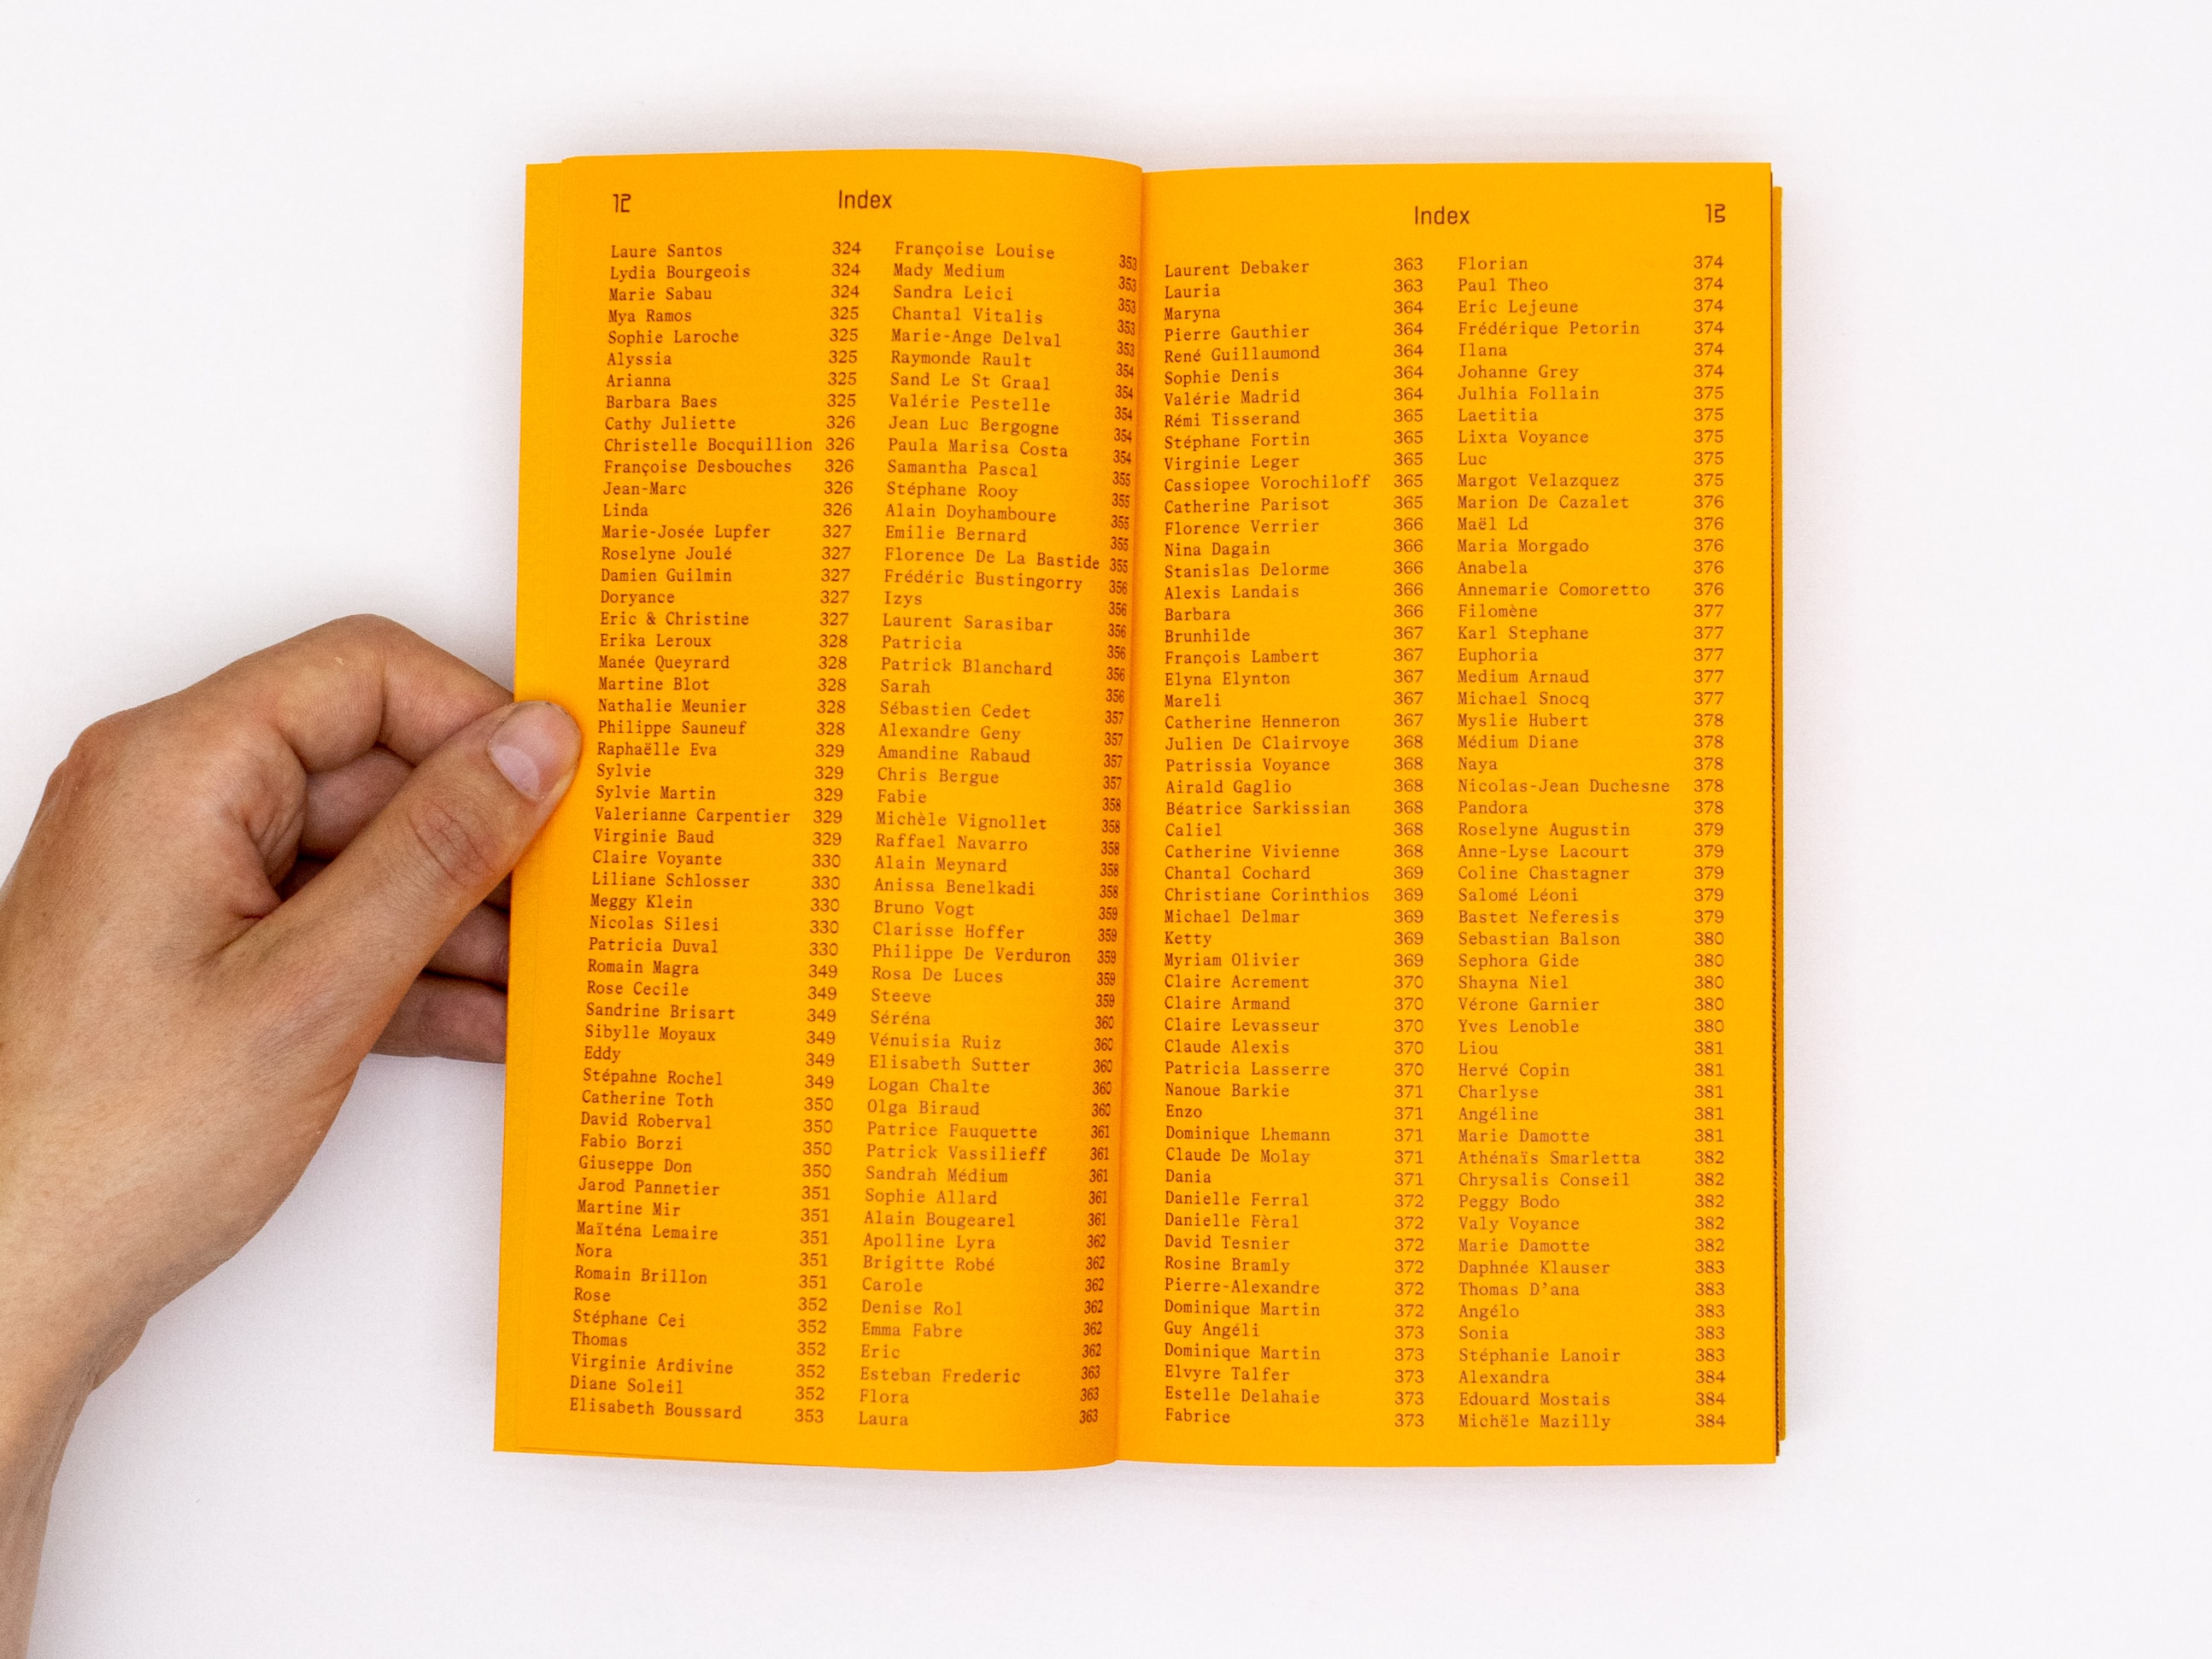 12
Index
Laure Santos 324
Lydia Bourgeois 324
Marie Sabau 324
Mya Ramos 325
Sophie Laroche 325
Alyssia 325
Arianna 325
Barbara Baes 325
Cathy Juliette 326
Christelle Bocquillion 326
Françoise Desbouches 326
Jean-Marc 326
Linda 326
Marie-Josée Lupfer 327
Roselyne Joulé 327
Damien Guilmin 327
Doryance 327
Eric & Christine 327
Erika Leroux 328
Manée Queyrard 328
Martine Blot 328
Nathalie Meunier 328
Philippe Sauneuf 328
Raphaëlle Eva 329
Sylvie 329
Sylvie Martin 329
Valerianne Carpentier 329
Virginie Baud 329
Claire Voyante 330
Liliane Schlosser 330
Meggy Klein 330
Nicolas Silesi 330
Patricia Duval 330
Romain Magra 349
Rose Cecile 349
Sandrine Brisart 349
Sibylle Moyaux 349
Eddy 349
Stépahne Rochel 349
Catherine Toth 350
David Roberval 350
Fabio Borzi 350
Giuseppe Don 350
Jarod Pannetier 351
Martine Mir 351
Maïténa Lemaire 351
Nora 351
Romain Brillon 351
Rose 352
Stéphane Cei 352
Thomas 352
Virginie Ardivine 352
Diane Soleil 352
Elisabeth Boussard 353
Françoise Louise 353
Mady Medium 353
Sandra Leici 353
Chantal Vitalis 353
Marie-Ange Delval 353
Raymonde Rault 354
Sand Le St Graal 354
Valérie Pestelle 354
Jean Luc Bergogne 354
Paula Marisa Costa 354
Samantha Pascal 355
Stéphane Rooy 355
Alain Doyhamboure 355
Emilie Bernard 355
Florence De La Bastide 355
Frédéric Bustingorry 356
Izys 356
Laurent Sarasibar 356
Patricia 356
Patrick Blanchard 356
Sarah 356
Sébastien Cedet 357
Alexandre Geny 357
Amandine Rabaud 357
Chris Bergue 357
Fabie 358
Michèle Vignollet 358
Raffael Navarro 358
Alain Meynard 358
Anissa Benelkadi 358
Bruno Vogt 359
Clarisse Hoffer 359
Philippe De Verduron 359
Rosa De Luces 359
Steeve 359
Séréna 360
Vénuisia Ruiz 360
Elisabeth Sutter 360
Logan Chalte 360
Olga Biraud 360
Patrice Fauquette 361
Patrick Vassilieff 361
Sandrah Médium 361
Sophie Allard 361
Alain Bougearel 361
Apolline Lyra 362
Brigitte Robé 362
Carole 362
Denise Rol 362
Emma Fabre 362
Eric 362
Esteban Frederic 363
Flora 363
Laura 363
Index
13
Laurent Debaker 363
Lauria 363
Maryna 364
Pierre Gauthier 364
René Guillaumond 364
Sophie Denis 364
Valérie Madrid 364
Rémi Tisserand 365
Stéphane Fortin 365
Virginie Leger 365
Cassiopee Vorochiloff 365
Catherine Parisot 365
Florence Verrier 366
Nina Dagain 366
Stanislas Delorme 366
Alexis Landais 366
Barbara 366
Brunhilde 367
François Lambert 367
Elyna Elynton 367
Mareli 367
Catherine Henneron 367
Julien De Clairvoye 368
Patrissia Voyance 368
Airald Gaglio 368
Béatrice Sarkissian 368
Caliel 368
Catherine Vivienne 368
Chantal Cochard 369
Christiane Corinthios 369
Michael Delmar 369
Ketty 369
Myriam Olivier 369
Claire Acrement 370
Claire Armand 370
Claire Levasseur 370
Claude Alexis 370
Patricia Lasserre 370
Nanoue Barkie 371
Enzo 371
Dominique Lhemann 371
Claude De Molay 371
Dania 371
Danielle Ferral 372
Danielle Fèral 372
David Tesnier 372
Rosine Bramly 372
Pierre-Alexandre 372
Dominique Martin 372
Guy Angéli 373
Dominique Martin 373
Elvyre Talfer 373
Estelle Delahaie 373
Fabrice 373
Florian 374
Paul Theo 374
Eric Lejeune 374
Frédérique Petorin 374
Ilana 374
Johanne Grey 374
Julhia Follain 375
Laetitia 375
Lixta Voyance 375
Luc 375
Margot Velazquez 375
Marion De Cazalet 376
Maël Ld 376
Maria Morgado 376
Anabela 376
Annemarie Comoretto 376
Filomène 377
Karl Stephane 377
Euphoria 377
Medium Arnaud 377
Michael Snocq 377
Myslie Hubert 378
Médium Diane 378
Naya 378
Nicolas-Jean Duchesne 378
Pandora 378
Roselyne Augustin 379
Anne-Lyse Lacourt 379
Coline Chastagner 379
Salomé Léoni 379
Bastet Neferesis 379
Sebastian Balson 380
Sephora Gide 380
Shayna Niel 380
Vérone Garnier 380
Yves Lenoble 380
Liou 381
Hervé Copin 381
Charlyse 381
Angéline 381
Marie Damotte 381
Athénaïs Smarletta 382
Chrysalis Conseil 382
Peggy Bodo 382
Valy Voyance 382
Marie Damotte 382
Daphnée Klauser 383
Thomas D'ana 383
Angélo 383
Sonia 383
Stéphanie Lanoir 383
Alexandra 384
Edouard Mostais 384
Michële Mazilly 384